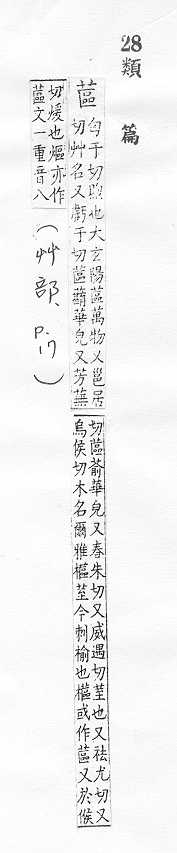 28類篇
蓲匈于切煦也大玄陽蓲萬物又邕居
切艸名又虧于切蓲蘛華皃又芳蕪
切蓲萮華皃又春朱切又威遇切荎也又祛尤切又
烏侯切木名爾雅櫙荎今刺榆也櫙或作蓲又於候
切煖也熰亦作
蓲文一重音八
(艸部 P.17)